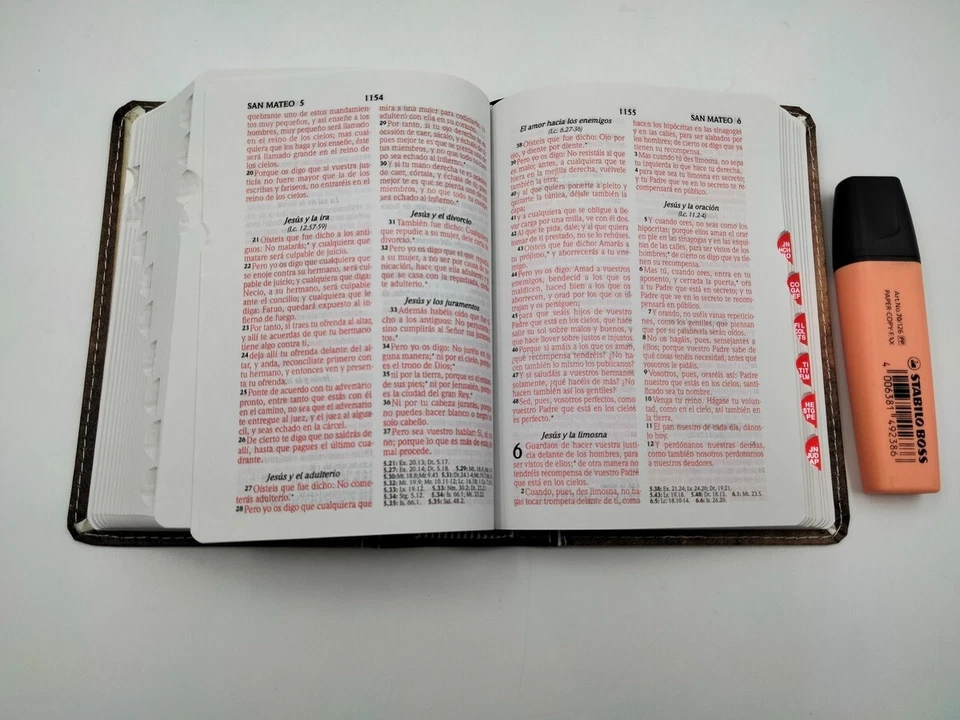 SAN MATEO 5
1154
quebrante uno de estos mandamien-
tos muy pequeños, y así enseñe a los
hombres, muy pequeño será llamado
en el reino de los cielos; mas cual-
quiera que los haga y los enseñe, éste
será llamado grande en el reino de
los cielos.
20 Porque os digo que si vuestra jus-
ticia no fuere mayor que la de los
escribas y fariseos, no entraréis en el
reino de los cielos.
Jesús y la ira
(Lc. 12.57-59)
21 Oísteis que fue dicho a los anti-
guos: No matarás; y cualquiera que
matare será culpable de juicio.
22 Pero yo os digo que cualquiera que
se enoje contra su hermano, será cul-
pable de juicio; y cualquiera que diga:
Necio, a su hermano, será culpable
ante el concilio; y cualquiera que le
diga: Fatuo, quedará expuesto al in-
fierno de fuego.
23 Por tanto, si traes tu ofrenda al altar,
y allí te acuerdas de que tu hermano
tiene algo contra ti,
24 deja allí tu ofrenda delante del al-
tar, y anda, reconcíliate primero con
tu hermano, y entonces ven y presen-
ta tu ofrenda.
25 Ponte de acuerdo con tu adversario
pronto, entre tanto que estás con él
en el camino, no sea que el adversario
te entregue al juez, y el juez al algua-
cil, y seas echado en la cárcel.
26 De cierto te digo que no saldrás de
allí, hasta que pagues el último cua-
drante.
Jesús y el adulterio
27 Oísteis que fue dicho: No come-
terás adulterio.*
28 Pero yo os digo que cualquiera que
mira a una mujer para codiciarla, ya
adulteró con ella en su corazón.
29 Por tanto, si tu ojo derecho te es
ocasión de caer, sácalo, y échalo de ti;
pues mejor te es que se pierda uno de
tus miembros, y no que todo tu cuer-
po sea echado al infierno.*
30 Y si tu mano derecha te es ocasión
de caer, córtala, y échala de ti; pues
mejor te es que se pierda uno de tus
miembros, y no que todo tu cuerpo
sea echado al infierno.*
Jesús y el divorcio
31 También fue dicho: Cualquiera
que repudie a su mujer, dele carta de
divorcio.*
32 Pero yo os digo que el que repudia
a su mujer, a no ser por causa de for-
nicación, hace que ella adultere; y el
que se casa con la repudiada, come-
te adulterio.*
Jesús y los juramentos
33 Además habéis oído que fue di-
cho a los antiguos: No perjurarás,
sino cumplirás al Señor tus juramentos.*
34 Pero yo os digo: No juréis en nin-
guna manera;* ni por el cielo, porque
es el trono de Dios;*
35 ni por la tierra, porque es el estrado
de sus pies;* ni por Jerusalén, porque
es la ciudad del gran Rey.*
36 Ni por tu cabeza jurarás, porque
no puedes hacer blanco o negro un
solo cabello.
37 Pero sea vuestro hablar: Sí, sí; no,
no; porque lo que es más de esto, de
mal procede.
5.21: Ex. 20.13; Dt. 5.17.
5.27: Ex. 20.14; Dt. 5.18. 5.29:
5.30:
5.32: Mt. 19.9; Mr. 10.11-12; Lc. 16.18;
5.33: Lv. 19.12.
5.34: Stg. 5.12. 5.34: Is. 66.1; Mt. 23.22.
5.35: Is. 66.1. 5.35: Sal. 48.2.
1155
SAN MATEO 6
El amor hacia los enemigos
(Lc. 6.27-36)
38 Oísteis que fue dicho: Ojo por
ojo, y diente por diente.*
39 Pero yo os digo: No resistáis al que
es malo; antes, a cualquiera que te
hiera en la mejilla derecha, vuélvele
también la otra;
40 y al que quiera ponerte a pleito y
quitarte la túnica, déjale también la
capa;
41 y a cualquiera que te obligue a lle-
var carga por una milla, ve con él dos.
42 Al que te pida, dale; y al que quiera
tomar de ti prestado, no se lo rehúses.
43 Oísteis que fue dicho: Amarás a
tu prójimo,* y aborrecerás a tu ene-
migo.
44 Pero yo os digo: Amad a vuestros
enemigos, bendecid a los que os
maldicen, haced bien a los que os
aborrecen, y orad por los que os ul-
trajan y os persiguen;
45 para que seáis hijos de vuestro
Padre que está en los cielos, que hace
salir su sol sobre malos y buenos, y
que hace llover sobre justos e injustos.
46 Porque si amáis a los que os aman,
¿qué recompensa tendréis? ¿No ha-
cen también lo mismo los publicanos?
47 Y si saludáis a vuestros hermanos
solamente, ¿qué hacéis de más? ¿No
hacen también así los gentiles?
48 Sed, pues, vosotros perfectos, como
vuestro Padre que está en los cielos
es perfecto.*
Jesús y la limosna
6 Guardaos de hacer vuestra justi-
cia delante de los hombres, para
ser vistos de ellos;* de otra manera no
tendréis recompensa de vuestro Padre
que está en los cielos.
2 Cuando, pues, des limosna, no ha-
gas tocar trompeta delante de ti, como
hacen los hipócritas en las sinagogas
y en las calles, para ser alabados por
los hombres; de cierto os digo que ya
tienen su recompensa.
3 Mas cuando tú des limosna, no sepa
tu izquierda lo que hace tu derecha,
4 para que sea tu limosna en secreto;
y tu Padre que ve en lo secreto te re-
compensará en público.
Jesús y la oración
(Lc. 11.2-4)
5 Y cuando ores, no seas como los
hipócritas; porque ellos aman el orar
en pie en las sinagogas y en las esqui-
nas de las calles, para ser vistos de los
hombres;* de cierto os digo que ya
tienen su recompensa.
6 Mas tú, cuando ores, entra en tu
aposento, y cerrada la puerta,* ora
a tu Padre que está en secreto; y tu
Padre que ve en lo secreto te recom-
pensará en público.
7 Y orando, no uséis vanas repeticio-
nes, como los gentiles, que piensan
que por su palabrería serán oídos.
8 No os hagáis, pues, semejantes a
ellos; porque vuestro Padre sabe de
qué cosas tenéis necesidad, antes que
vosotros le pidáis.
9 Vosotros, pues, oraréis así: Padre
nuestro que estás en los cielos, santi-
ficado sea tu nombre.
10 Venga tu reino. Hágase tu volun-
tad, como en el cielo, así también en
la tierra.
11 El pan nuestro de cada día, dános-
lo hoy.
12 Y perdónanos nuestras deudas,
como también nosotros perdonamos
a nuestros deudores.
5.38: Ex. 21.24; Lv. 24.20; Dt. 19.21.
5.43: Lv. 19.18. 5.48: Dt. 18.13. 6.1: Mt. 23.5.
6.5: Lc. 18.10-14. 6.6: Is. 26.20.
JN
HCH
RO
CO
GÁ
EF
FIL
COL
TS
TI
TIT
FLM
HE
STG
PE
JN
JUD
AP
Art.No.70/126
PAPER COPY FAX
STABILO BOSS
4 006381 492386